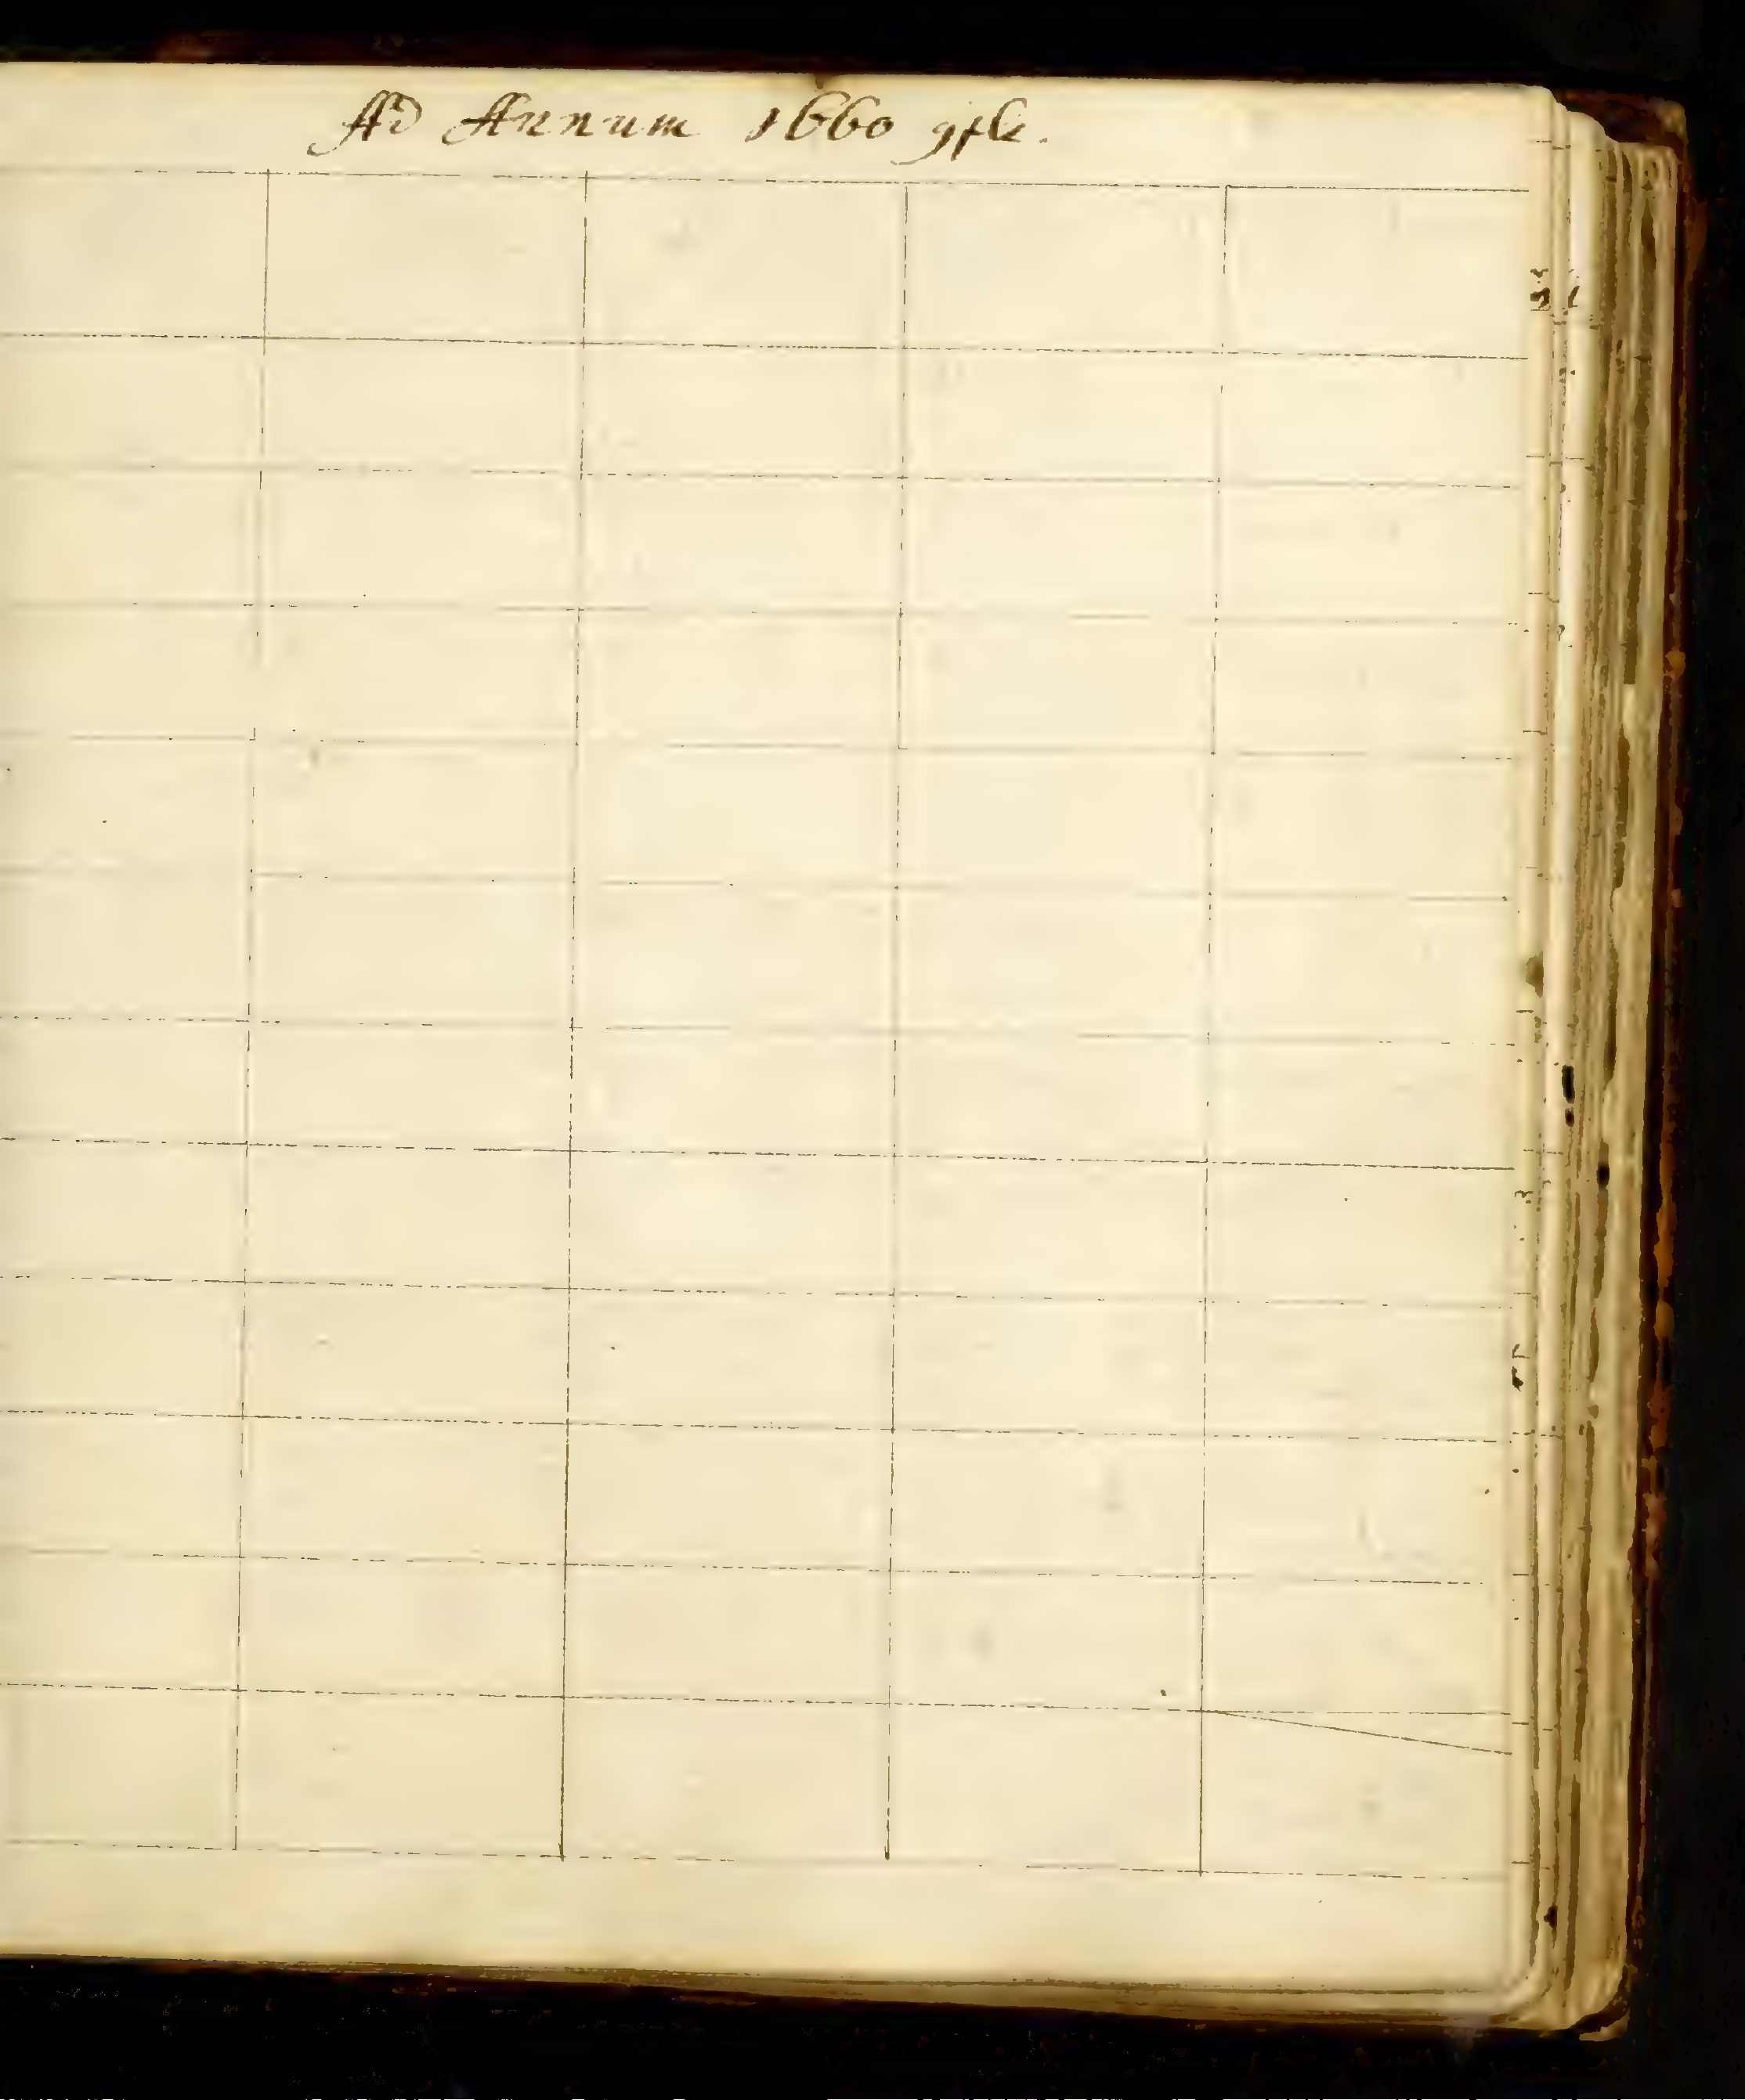 Ad Annum 1660